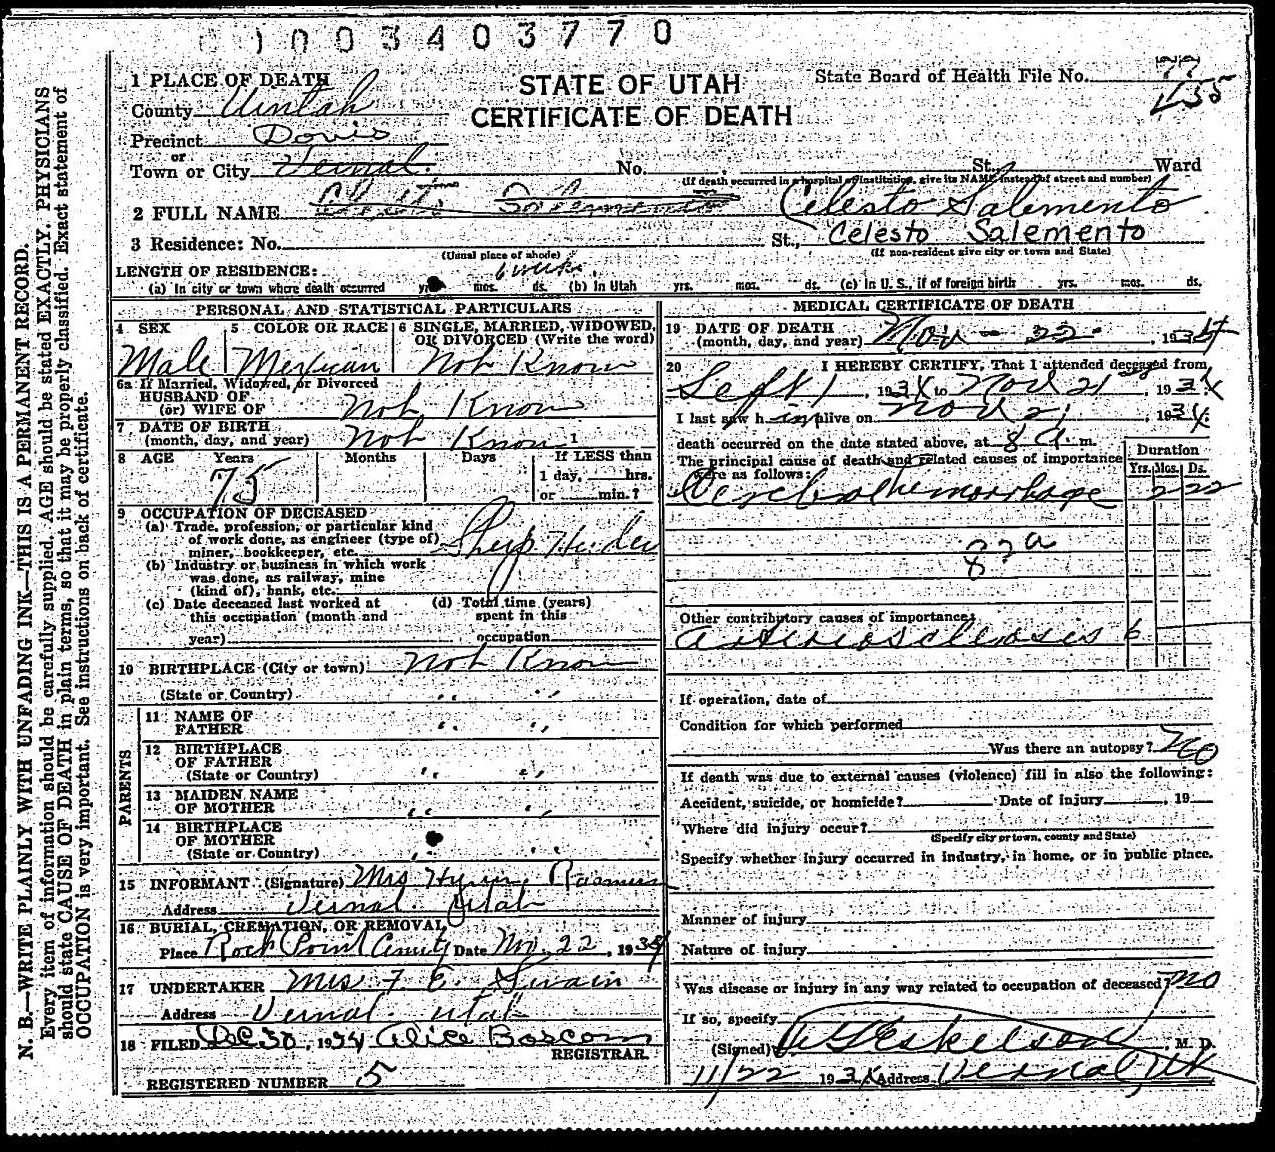 0 0 3 4 0 3 7 7 0
STATE OF UTAH
CERTIFICATE OF DEATH
State Board of Health File No. 77
455
1 PLACE OF DEATH
County Uintah
Precinct Davis
or
Town or City Vernal. No. St. Ward
(If death occurred in a hospital or institution, give its NAME instead of street and number)
2 FULL NAME Celesto Salemento
3 Residence: No. St., Celesto Salemento
(Usual place of abode) (If non-resident give city or town and State)
LENGTH OF RESIDENCE: 6 weeks.
(a) In city or town where death occurred yrs. mos. ds. (b) In Utah yrs. mos. ds. (c) In U. S., if of foreign birth yrs. mos. ds.
PERSONAL AND STATISTICAL PARTICULARS
4 SEX 5 COLOR OR RACE 6 SINGLE, MARRIED, WIDOWED, OR DIVORCED (Write the word)
Male Mexican Not Know
6a If Married, Widowed, or Divorced
HUSBAND OF
(or) WIFE OF Not Know
7 DATE OF BIRTH
(month, day, and year) Not Know 1
8 AGE Years Months Days If LESS than
75 1 day, hrs.
or min.?
9 OCCUPATION OF DECEASED
(a) Trade, profession, or particular kind
of work done, as engineer (type of)
miner, bookkeeper, etc. Sheep Herder
(b) Industry or business in which work
was done, as railway, mine
(kind of), bank, etc.
(c) Date deceased last worked at
this occupation (month and
year)
(d) Total time (years)
spent in this
occupation
10 BIRTHPLACE (City or town) Not Know
(State or Country) " "
PARENTS
11 NAME OF
FATHER " "
12 BIRTHPLACE
OF FATHER
(State or Country) " "
13 MAIDEN NAME
OF MOTHER " "
14 BIRTHPLACE
OF MOTHER
(State or Country) " "
15 INFORMANT (Signature) Mrs Hyrum
Address Vernal Utah
16 BURIAL, CREMATION, OR REMOVAL
Place Rock Point Date Nov. 22, 1934
17 UNDERTAKER Mrs F E. Swain
Address Vernal Utah
18 FILED Dec 30, 1934 Alice Bascom
REGISTRAR.
REGISTERED NUMBER 5
MEDICAL CERTIFICATE OF DEATH
19 DATE OF DEATH
(month, day, and year) Nov - 22 - , 1934
20 I HEREBY CERTIFY, That I attended deceased from
Sept 1, 1934 to Nov 21, 1934
I last saw him alive on Nov 21, 1934.
death occurred on the date stated above, at 8 a. m.
The principal cause of death and related causes of importance
were as follows:
Duration
Yrs. Mos. Ds.
Cerebral hemorrhage 2 22
82a
Other contributory causes of importance:
arteriosclerosis 6
If operation, date of
Condition for which performed
Was there an autopsy? No
If death was due to external causes (violence) fill in also the following:
Accident, suicide, or homicide? Date of injury , 19
Where did injury occur?
(Specify city or town, county and State)
Specify whether injury occurred in industry, in home, or in public place.
Manner of injury
Nature of injury
Was disease or injury in any way related to occupation of deceased? no
If so, specify
(Signed) Eskelson, M. D.
11/22 1934 Address Vernal, Ut
N. B.—WRITE PLAINLY WITH UNFADING INK—THIS IS A PERMANENT RECORD.
Every item of information should be carefully supplied. AGE should be stated EXACTLY. PHYSICIANS
should state CAUSE OF DEATH in plain terms, so that it may be properly classified. Exact statement of
OCCUPATION is very important. See instructions on back of certificate.